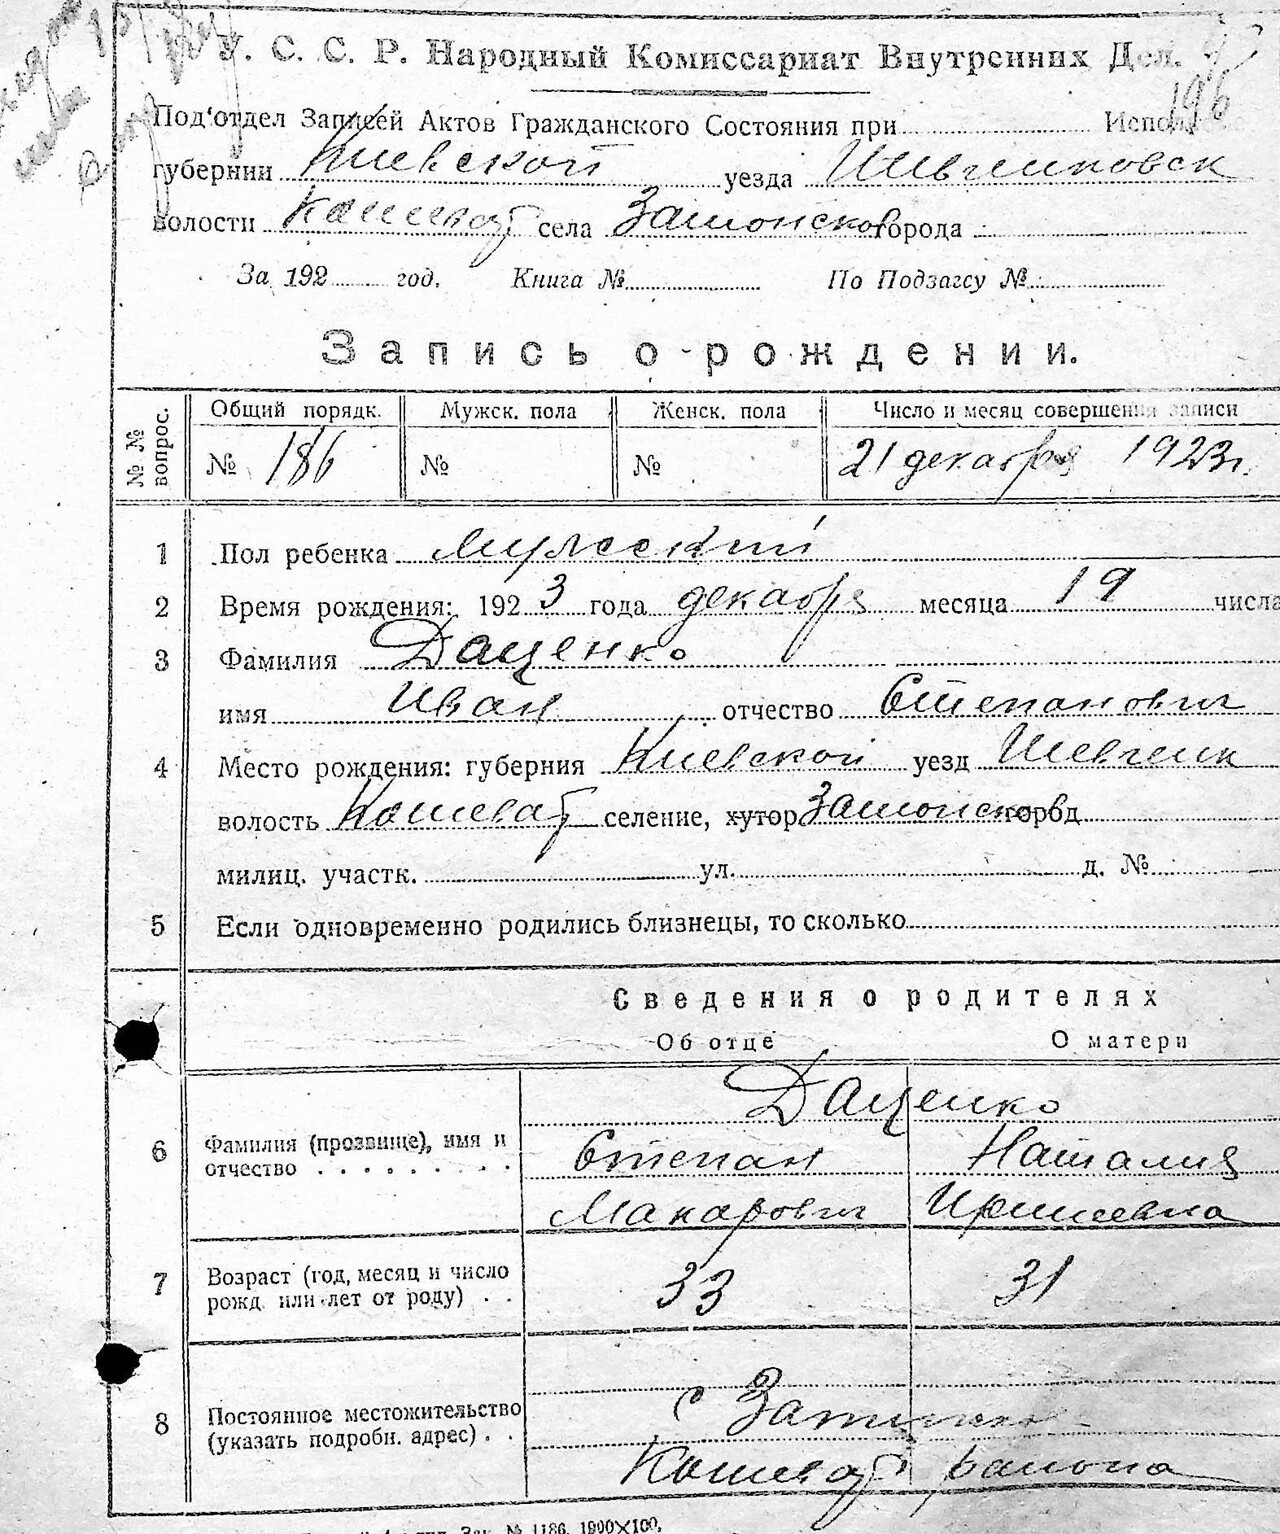 У. С. С. Р. Народный Комиссариат Внутренних Дел.
196
Под'отдел Записей Актов Гражданского Состояния при
губернии Киевской уезда Шевченковск
волости Кошеват села города
За 192 год. Книга № По Подзагсу №
Запись о рождении.
№ № вопрос. Общий порядк. Мужск. пола Женск. пола Число и месяц совершения записи
№ 186 № № 21 декабря 1923 г.
1 Пол ребенка мужеский
2 Время рождения: 192 3 года декабря месяца 19 числа
3 Фамилия Даценко
имя Иван отчество Степанович
4 Место рождения: губерния Киевской уезд Шевченк
волость Кошеват селение, хутор,
милиц. участк. ул. д. №
5 Если одновременно родились близнецы, то сколько
Сведения о родителях
Об отце О матери
Даценко
6 Фамилия (прозвище), имя и
отчество . . . . . . . . . Степан Наталия
Макарович
7 Возраст (год, месяц и число
рожд. или лет от роду) . . 33 31
8 Постоянное местожительство
(указать подробн. адрес) . . с
Кошеват района
Зак. № 1186. 1900×100.